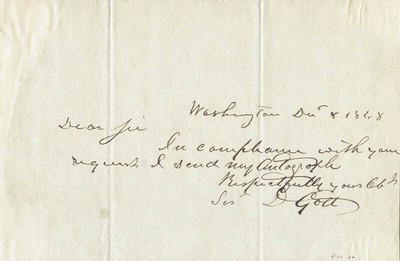 Washington Decr 8 1848
Dear Sir
In compliance with your
request I send my Autograph
Respectfully your Obt
Sert D Gott